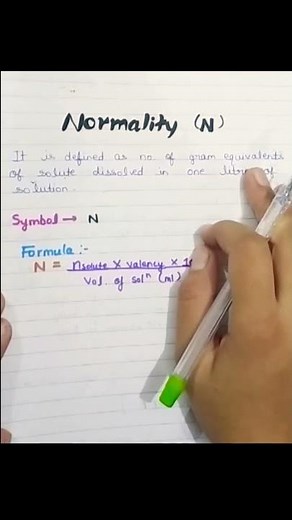 Normality (N)
It is defined as no. of gram equivalents
of solute dissolved in one litre of
solution.
Symbol → N
Formula :-
N = nsolute X valency X
Vol. of solⁿ (ml)